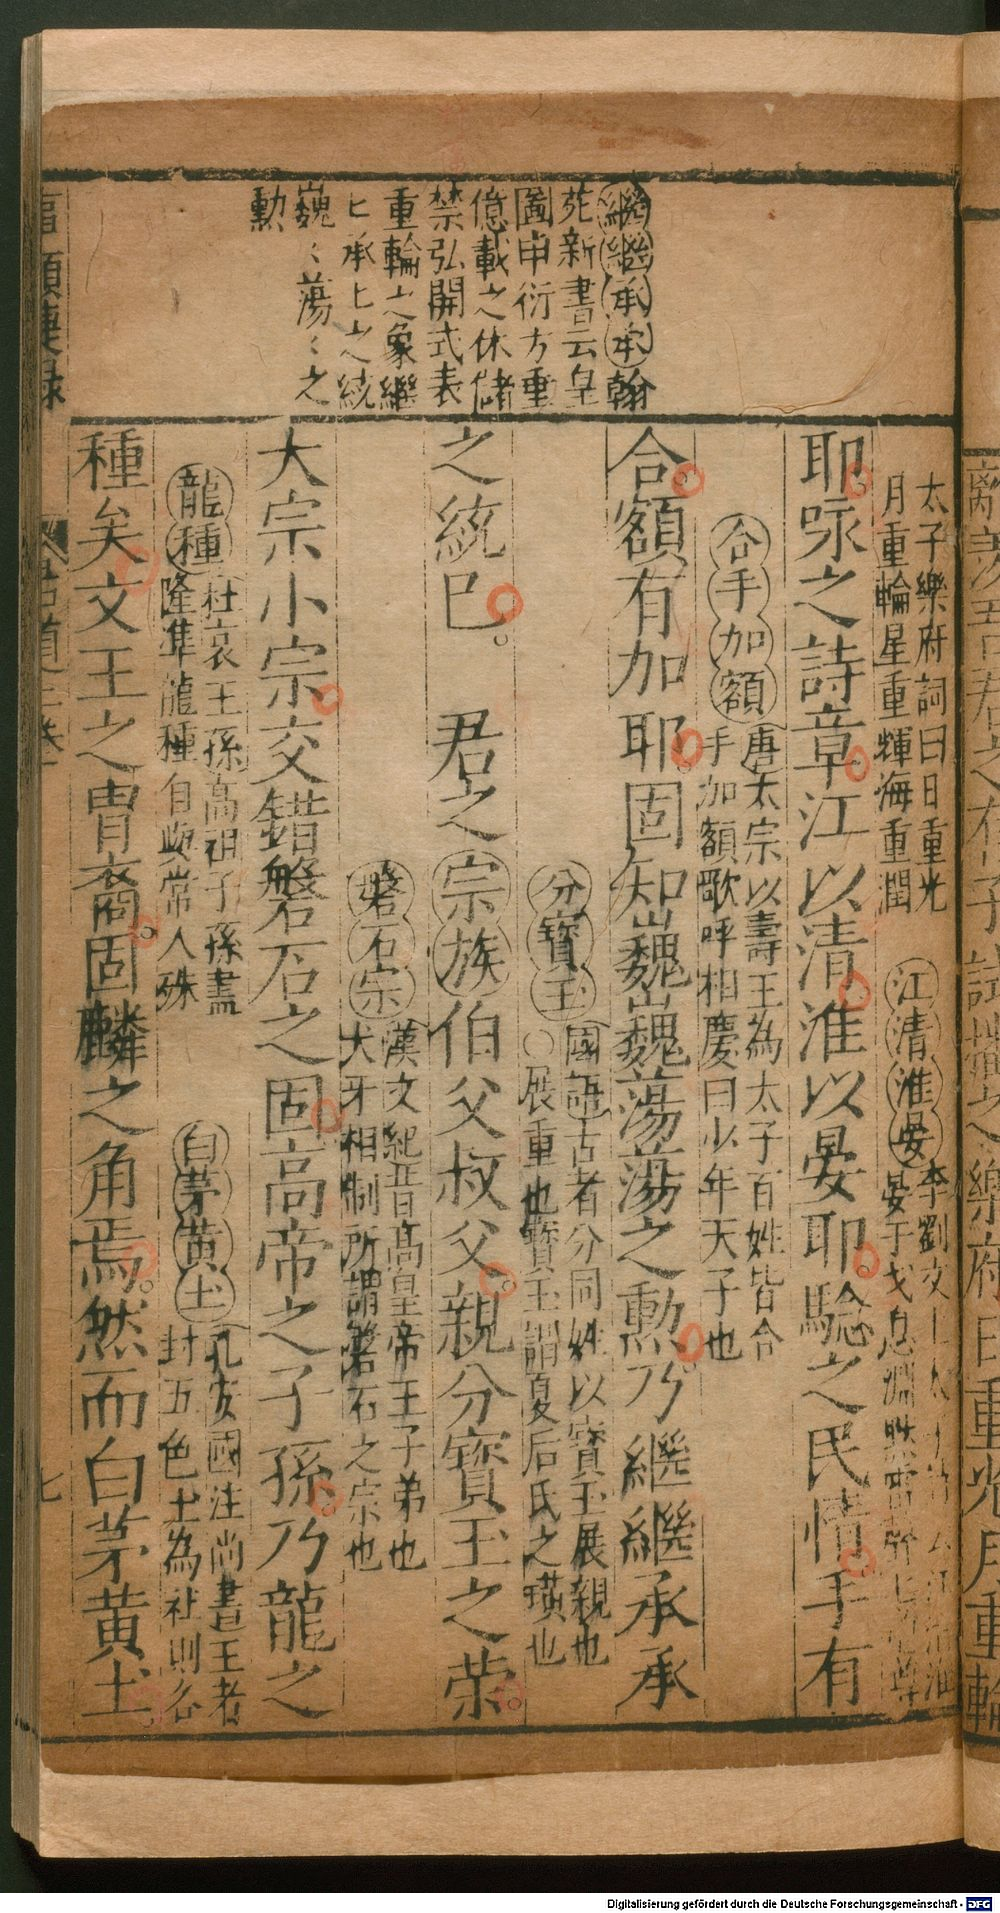 繼繼承承翰
苑新書云皇
圖申衍方重
億載之休儲
禁弘開式表
重輪之象繼
〻承〻之統
巍〻蕩〻之
勲
太子樂府詞曰日重光
月重輪星重輝海重潤
江清淮晏
李劉
晏于戈息
耶咏之詩章江以清淮以晏耶驗之民情手有
合手加額
唐太宗以壽王為太子百姓皆合
手加額歌呼相慶曰少年天子也
合額有加耶固知巍巍蕩蕩之勲乃繼繼承承
分寶玉
國語古者分同姓以寶玉展親也
○展重也寶玉謂夏后氏之璜也
之統巳。君之宗族伯父叔父親分寶玉之榮
磐石宗
漢文紀昔髙皇帝王子弟也
犬牙相制所謂磐石之宗也
大宗小宗交錯磐石之固高帝之子孫乃龍之
龍種
杜哀王孫髙祖子孫盡
隆準龍種自與常人殊
白茅黄土
孔安國注尚書王者
封五色土為社則各
種矣文王之胄裔固麟之角焉然而白茅黄土
七
離
君之有子試
樂府曰重光月重輪
Digitalisierung gefördert durch die Deutsche Forschungsgemeinschaft - DFG